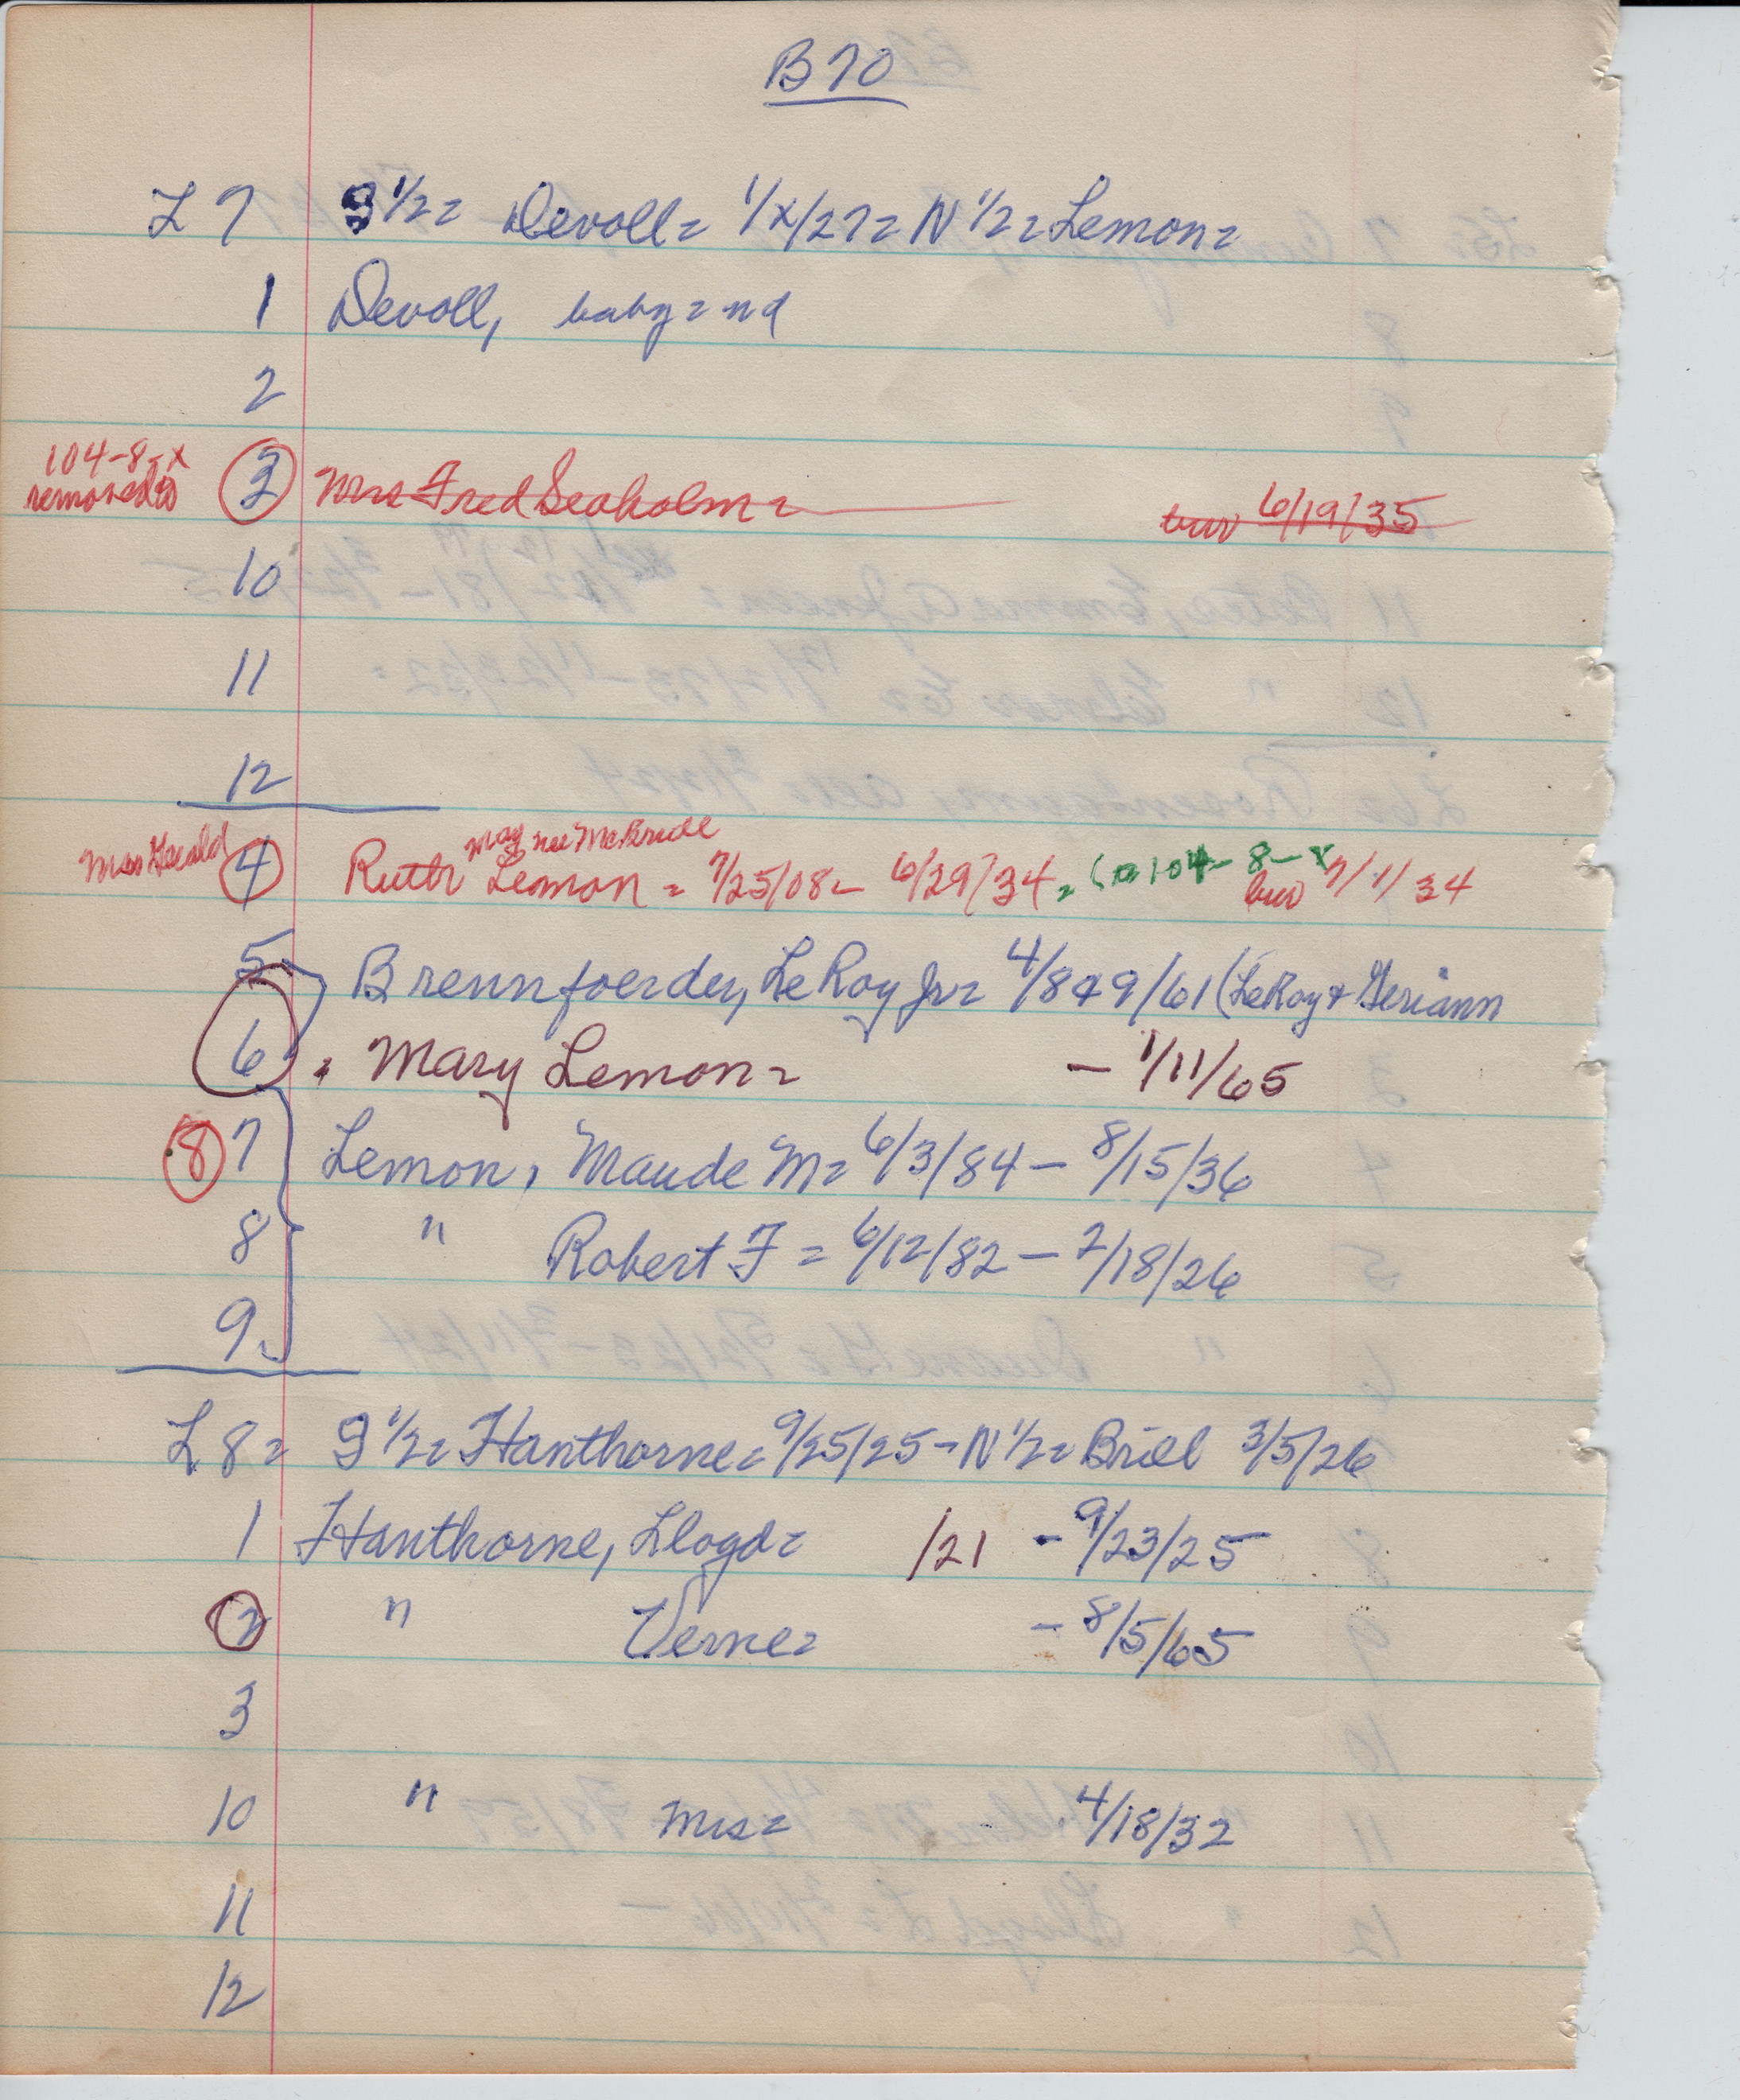 B70
L 7 S 1/2 = Devoll = 1/x/27 = N 1/2 = Lemon =
1 Devoll, baby = nd
2
104-8-x
removed to 3 Mrs Fred Seaholm = bur 6/19/35
10
11
12
May nee McBride
Mrs Gerald 4 Ruth Lemon = 7/25/08 - 6/29/34 = (to 104-8-x
bur 7/1/34
5 Brennfoerder, LeRoy Jr = 4/8 & 9/61 (LeRoy + Geriann
6 , Mary Lemon = - 1/11/65
8 7 Lemon, Maude M = 6/3/84 - 8/15/36
8 " Robert F = 6/12/82 - 2/18/26
9
L 8 = S 1/2 = Hanthorne = 9/25/25 - N 1/2 = Brill 3/5/26
1 Hanthorne, Lloyd = /21 - 9/23/25
2 " Verne = - 8/5/65
3
10 " Mrs = 4/18/32
11
12